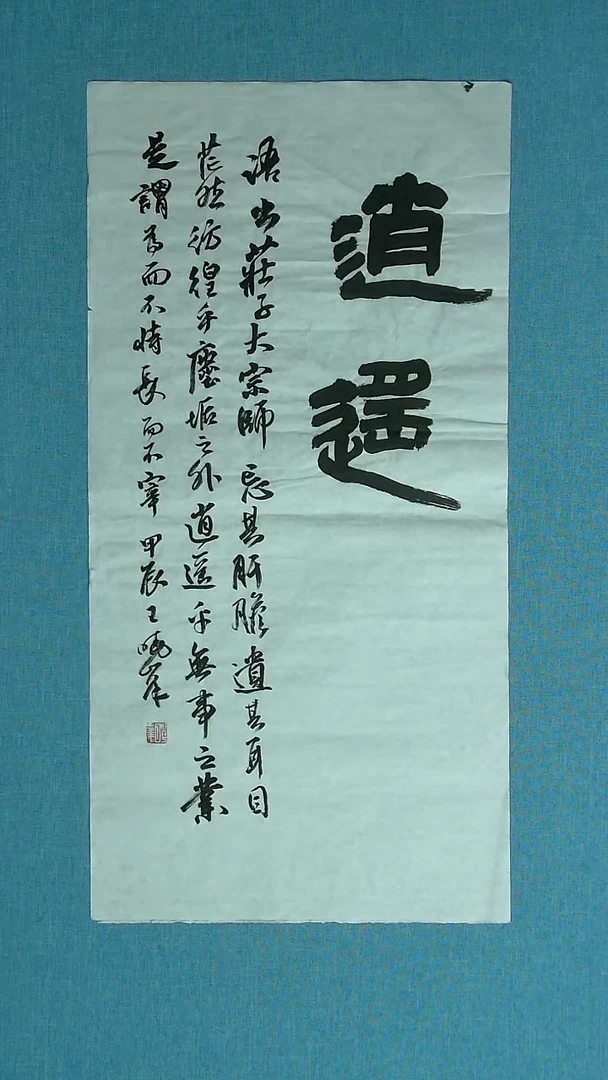 逍遥
語出莊子大宗師忘其肝膽遺其耳目
茫然彷徨乎塵垢之外逍遥乎無事之業
是謂為而不恃長而不宰甲辰王曉峯